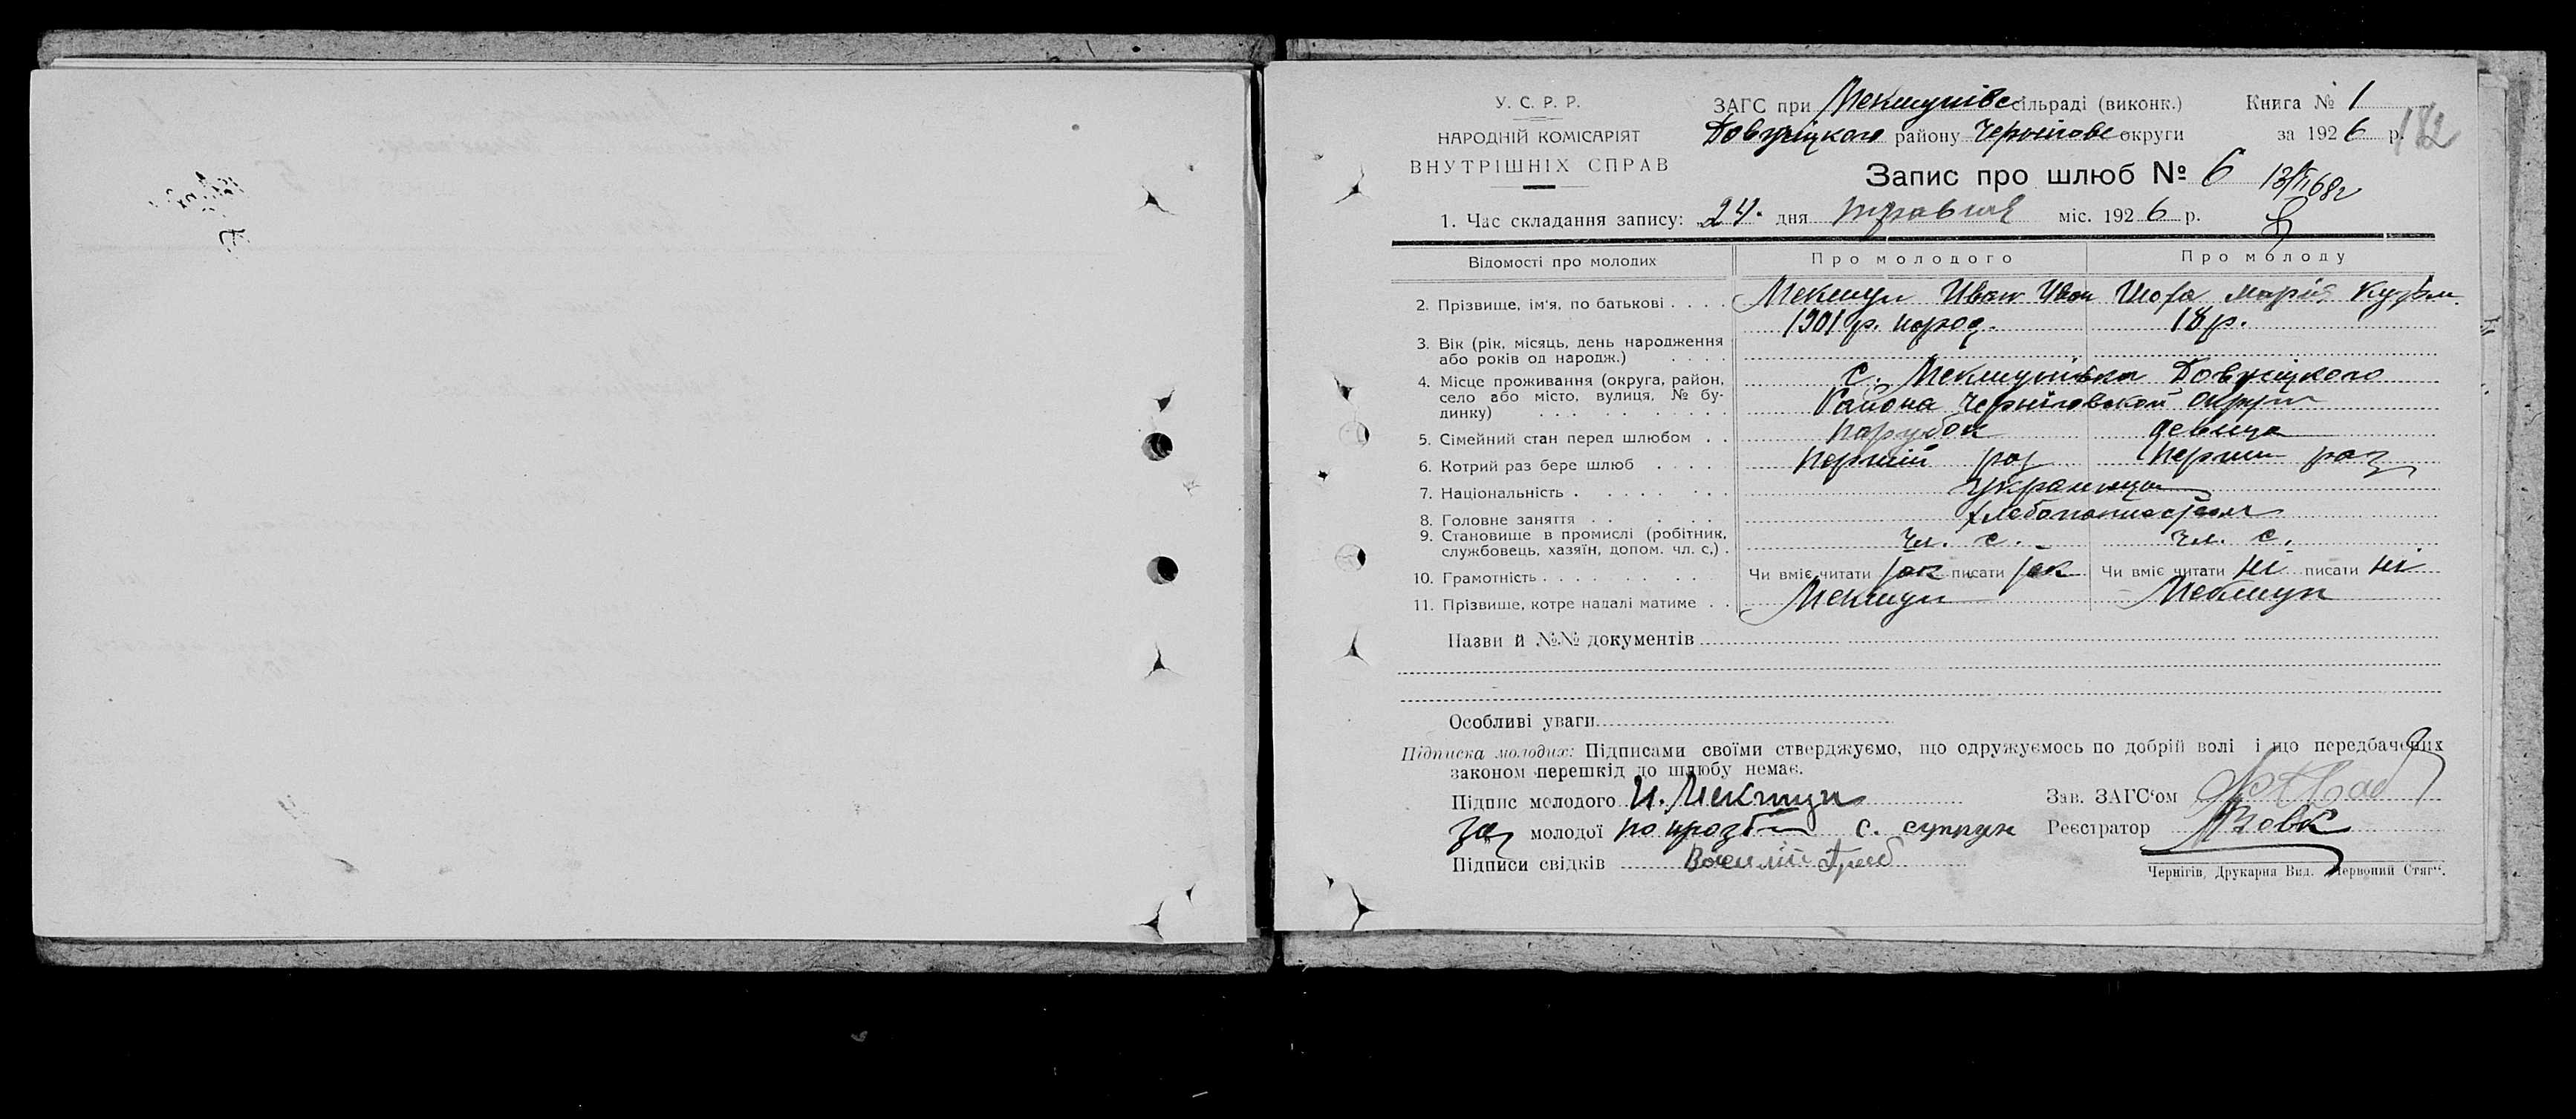 У. С. Р. Р.
НАРОДНІЙ КОМІСАРІЯТ
ВНУТРІШНІХ СПРАВ
ЗАГС при Мекшунівс сільраді (виконк.) Книга № 1
району Чернігове округи за 1926 р. 182
Запис про шлюб № 6
1. Час складання запису: 24. дня травня міс. 1926 р.
Відомості про молодих Про молодого Про молоду
2. Прізвище, ім'я, по батькові Мекшун Иван Иван Марія Кузьм.
1901 р. народ. 18 р.
3. Вік (рік, місяць, день народження
або років од народж.)
4. Місце проживання (округа, район,
село або місто, вулиця, № бу-
динку)
с. Мекшунівка
Района Черніговской округи
5. Сімейний стан перед шлюбом парубок девица
6. Котрий раз бере шлюб перший раз перший раз
7. Національність украинци
8. Головне заняття
9. Становище в промислі (робітник,
службовець, хазяїн, допом. чл. с.) чл. с. чл. с.
10. Грамотність Чи вміє читати так писати так Чи вміє читати ні писати ні
11. Прізвище, котре надалі матиме Мекшун Мекшун
Назви й №№ документів
Особливі уваги
Підписка молодих: Підписами своїми стверджуємо, що одружуємось по добрій волі і що передбачених
законом перешкід до шлюбу немає.
Підпис молодого И. Мекшун Зав. ЗАГС'ом
за молодої по прозбі с. супрун Реєстратор
Підписи свідків
Чернігів, Друкарня Вид. „Червоний Стяг“.